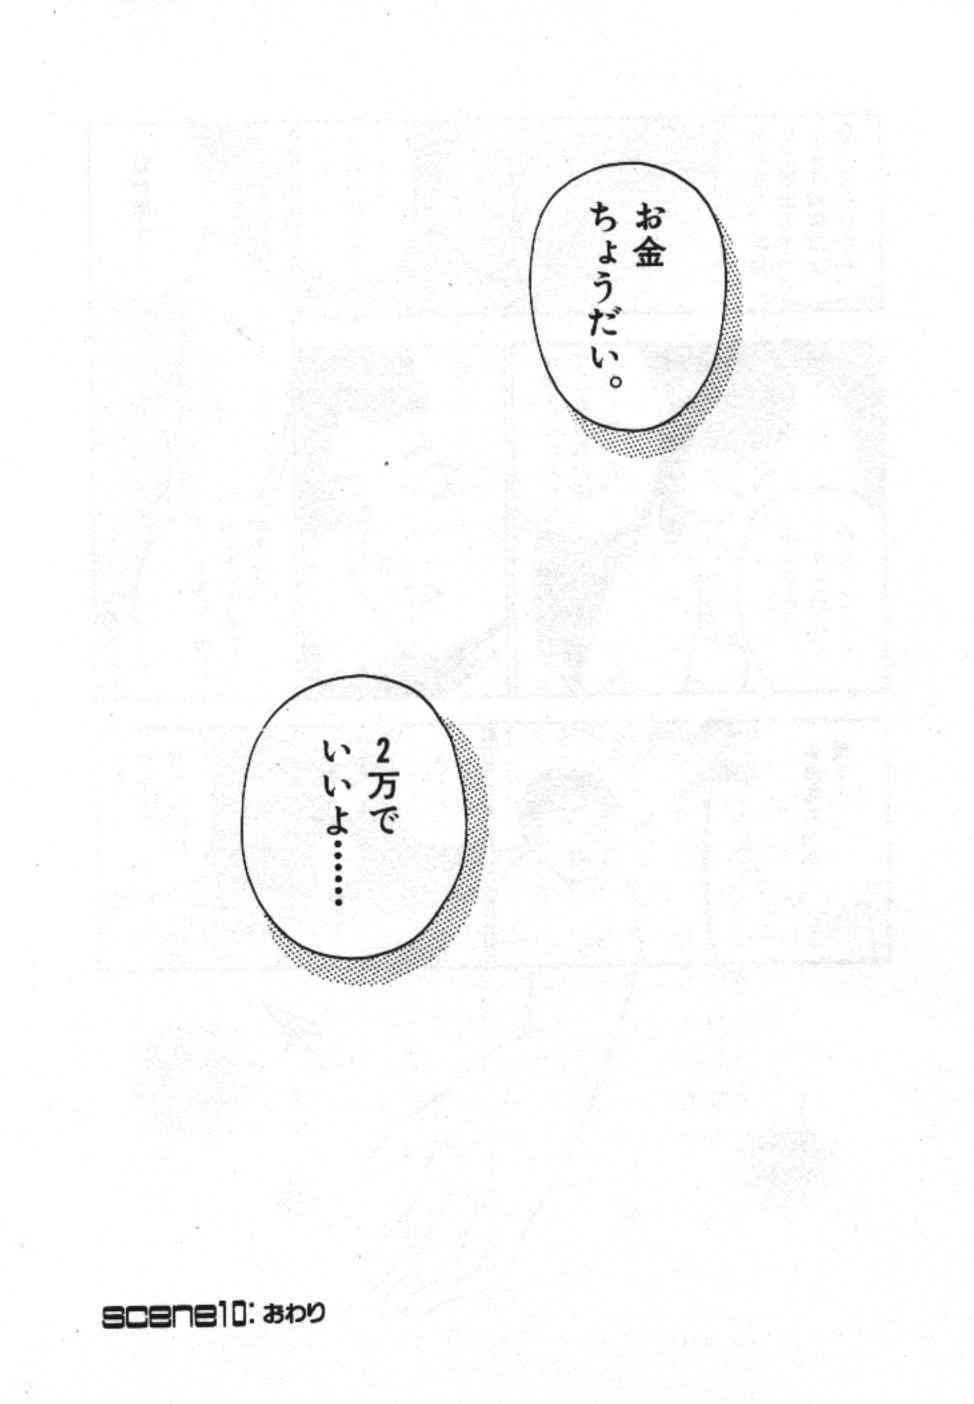 お金
ちょうだい。
2万で
いいよ……
scene10: おわり